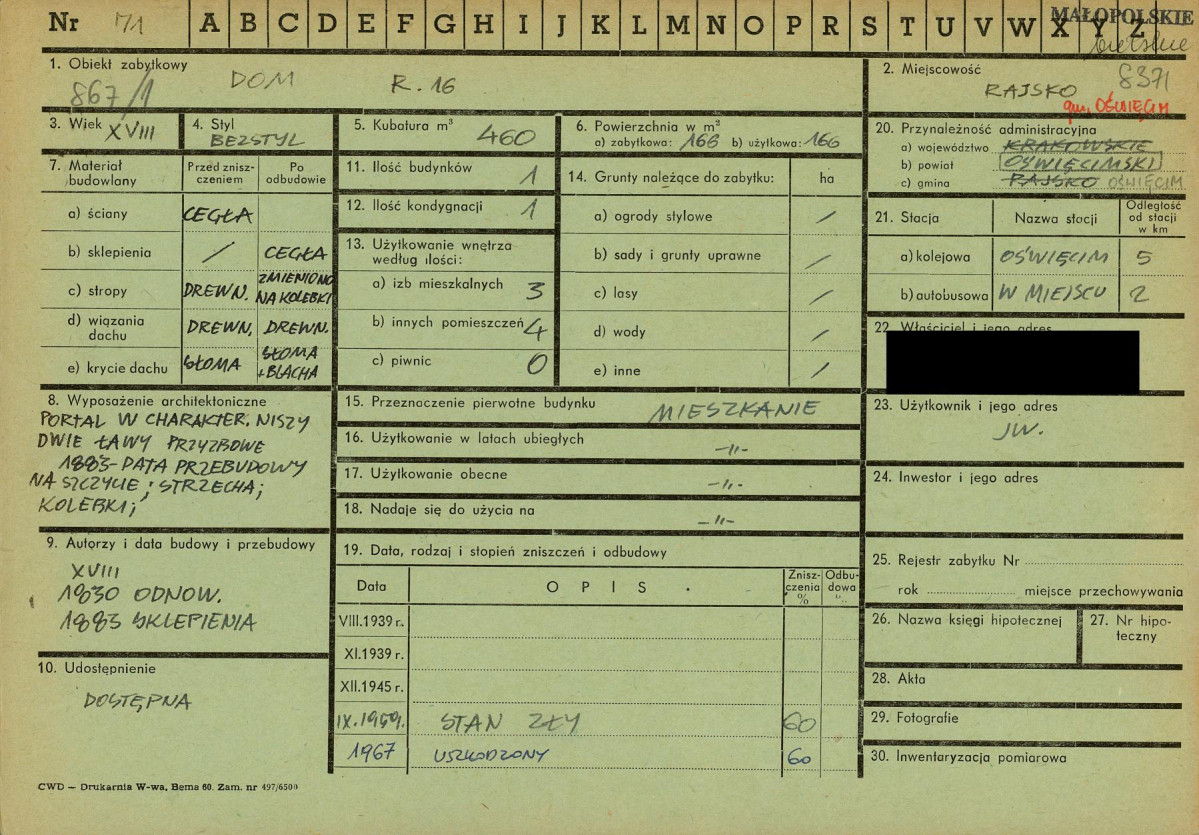 Nr 71 A B C D E F G H I J K L M N O P R S T U V W X Y Z
MAŁOPOLSKIE
bielskie
1. Obiekt zabytkowy
867/1 DOM R. 16
2. Miejscowość 8371
RAJSKO
gm. OŚWIĘCIM
3. Wiek XVIII
4. Styl
BEZSTYL
5. Kubatura m³ 460
6. Powierzchnia w m²
a) zabytkowa: 166 b) użytkowa: 166
7. Materiał budowlany
Przed zniszczeniem
Po odbudowie
a) ściany CEGŁA
b) sklepienia / CEGŁA
c) stropy DREWN. ZMIENIONO NA KOLEBKI
d) wiązania dachu DREWN. DREWN.
e) krycie dachu SŁOMA SŁOMA + BLACHA
8. Wyposażenie architektoniczne
PORTAL W CHARAKTER. NISZY
DWIE ŁAWY PRZYZBOWE
1883-DATA PRZEBUDOWY
NA SZCZYCIE; STRZECHA;
KOLEBKI;
9. Autorzy i data budowy i przebudowy
XVIII
1830 ODNOW.
1883 SKLEPIENIA
10. Udostępnienie
DOSTĘPNA
11. Ilość budynków 1
12. Ilość kondygnacji 1
13. Użytkowanie wnętrza
według ilości:
a) izb mieszkalnych 3
b) innych pomieszczeń 4
c) piwnic 0
14. Grunty należące do zabytku: ha
a) ogrody stylowe /
b) sady i grunty uprawne /
c) lasy /
d) wody /
e) inne /
15. Przeznaczenie pierwotne budynku MIESZKANIE
16. Użytkowanie w latach ubiegłych -"-
17. Użytkowanie obecne -"-
18. Nadaje się do użycia na -"-
19. Data, rodzaj i stopień zniszczeń i odbudowy
Data OPIS. Zniszczenia % Odbudowa %
VIII.1939 r.
XI.1939 r.
XII.1945 r.
IX.1959r. STAN ZŁY 60
1967 USZKODZONY 60
20. Przynależność administracyjna
a) województwo KRAKOWSKIE
b) powiat OŚWIĘCIMSKI
c) gmina RAJSKO OŚWIĘCIM
21. Stacja Nazwa stocji Odległość od stacji w km
a) kolejowa OŚWIĘCIM 5
b) autobusowa W MIEJSCU 2
22. Właściciel i jego adres
23. Użytkownik i jego adres
JW.
24. Inwestor i jego adres
25. Rejestr zabytku Nr
rok miejsce przechowywania
26. Nazwa księgi hipotecznej
27. Nr hipoteczny
28. Akta
29. Fotografie
30. Inwentaryzacja pomiarowa
CWD — Drukarnia W-wa, Bema 60. Zam. nr 497/6500